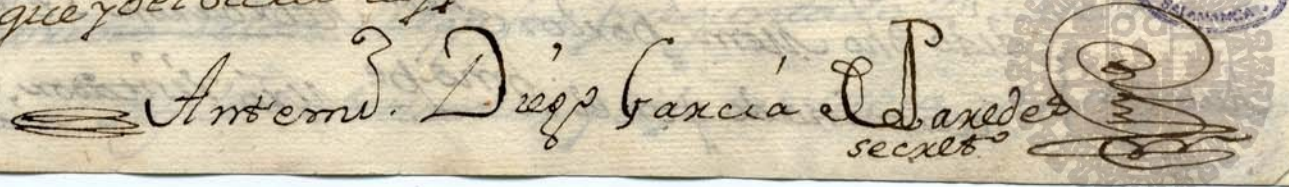 Antemi. Diego García de Paredes
secret.º
SALAMANCA